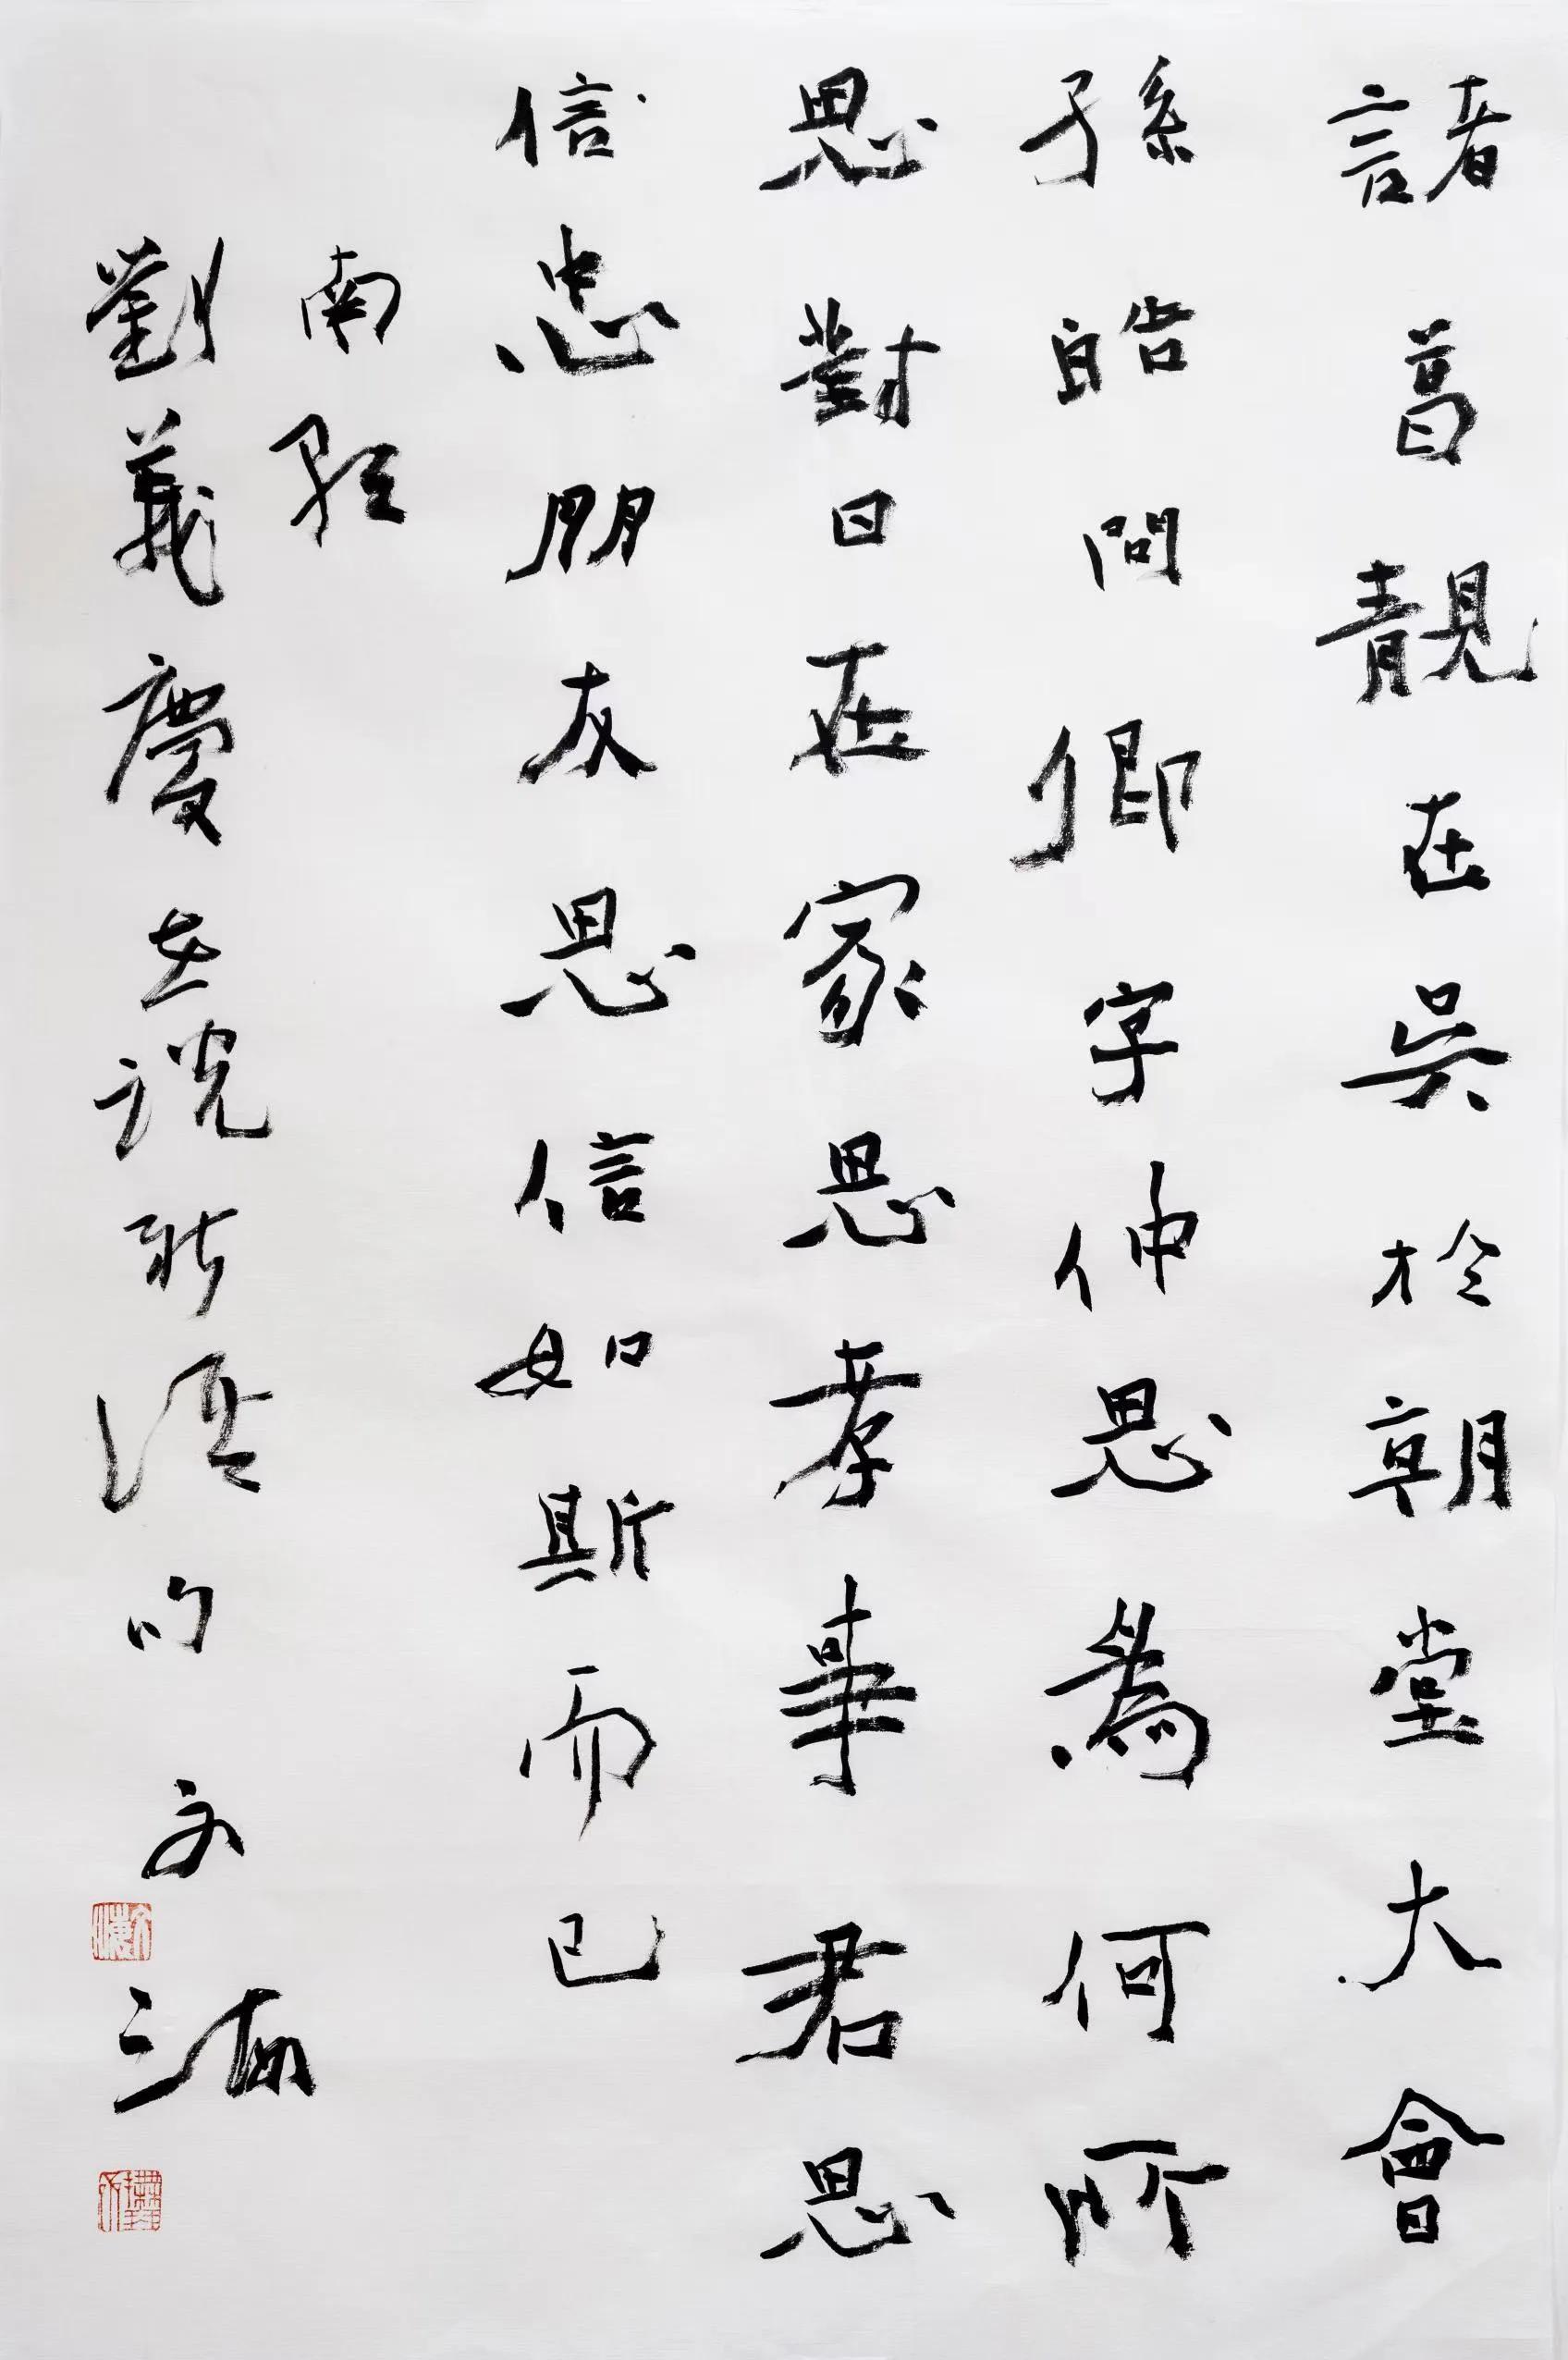 諸葛靚在吳於朝堂大會
孫皓問卿字仲思為何所
思對曰在家思孝事君思
信忠朋友思信如斯而已
南朝
劉義慶世說新語句